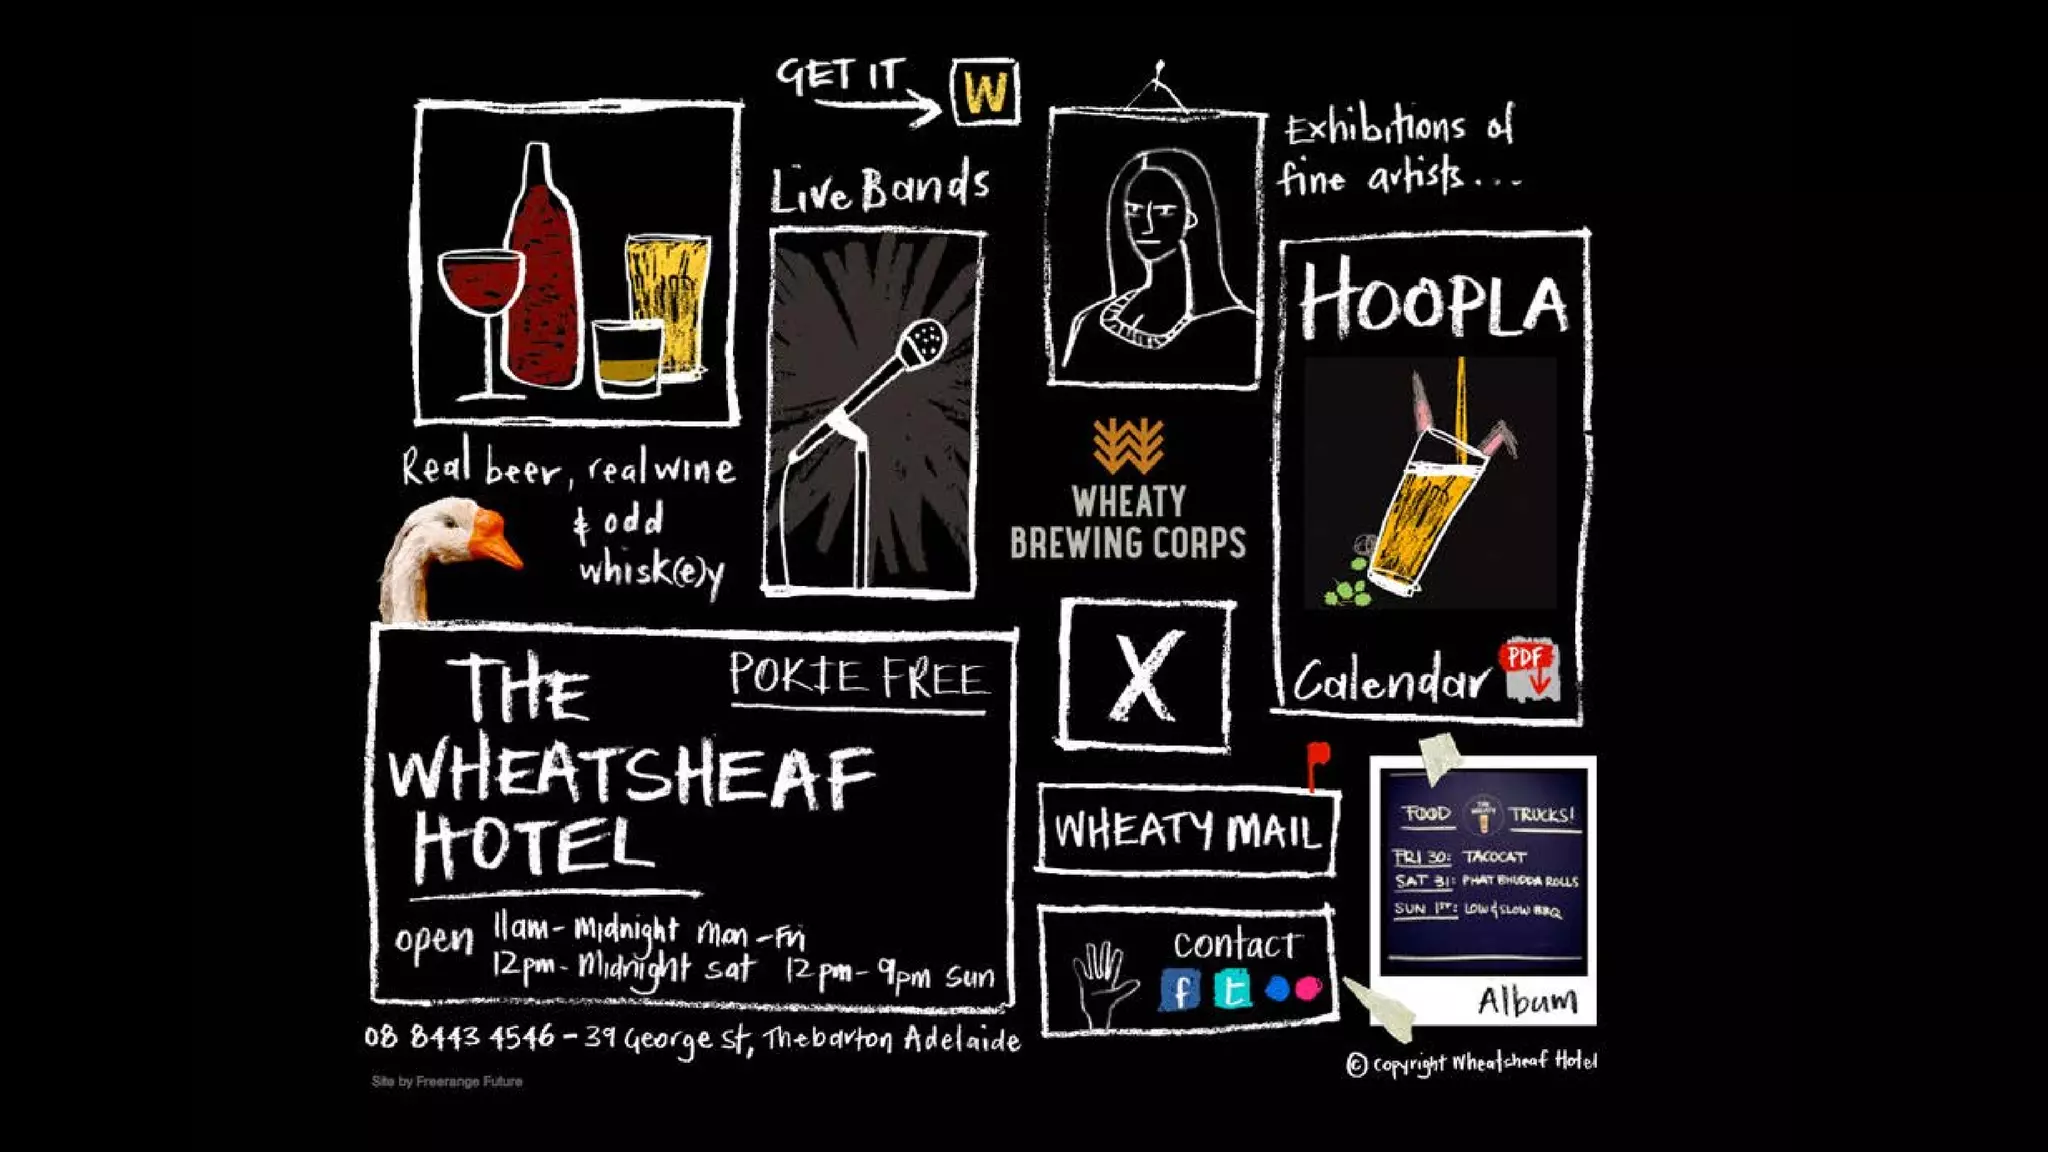 GET IT
W
Live Bands
Exhibitions of
fine artists...
HOOPLA
Real beer, real wine
& odd
whisk(e)y
WHEATY
BREWING CORPS
X
Calendar
PDF
THE
WHEATSHEAF
HOTEL
POKIE FREE
open 11am - Midnight Mon - Fri
12pm - Midnight Sat 12pm - 9pm Sun
WHEATY MAIL
contact
f t
FOOD THE WHEATY TRUCKS!
FRI 30: TACOCAT
SAT 31: PHAT BHUDDA ROLLS
SUN 1ST: LOW & SLOW BBQ
Album
08 8443 4546 - 39 George St, Thebarton Adelaide
© copyright Wheatsheaf Hotel
Site by Freerange Future